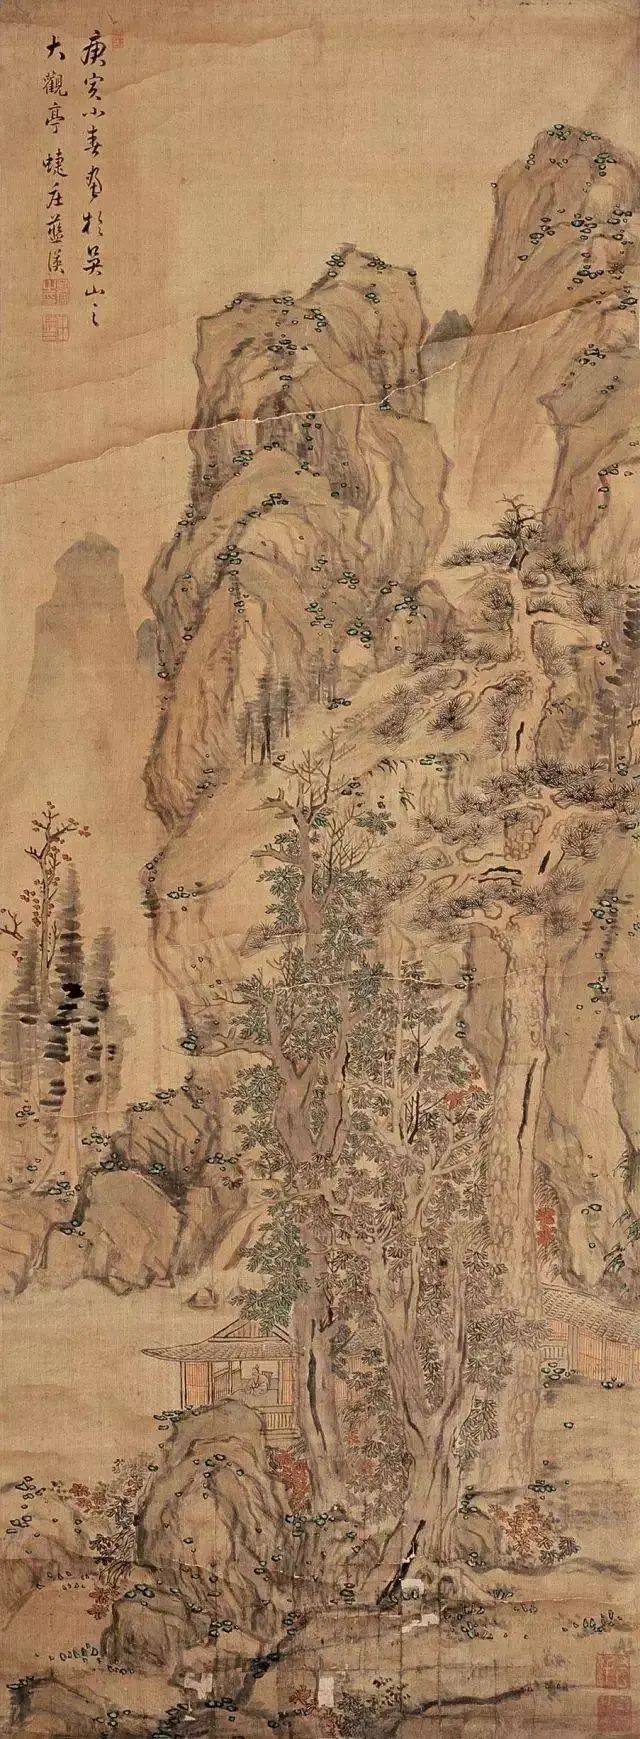 庚寅小春画於吴山之
大觀亭 蜨庄藍瑛